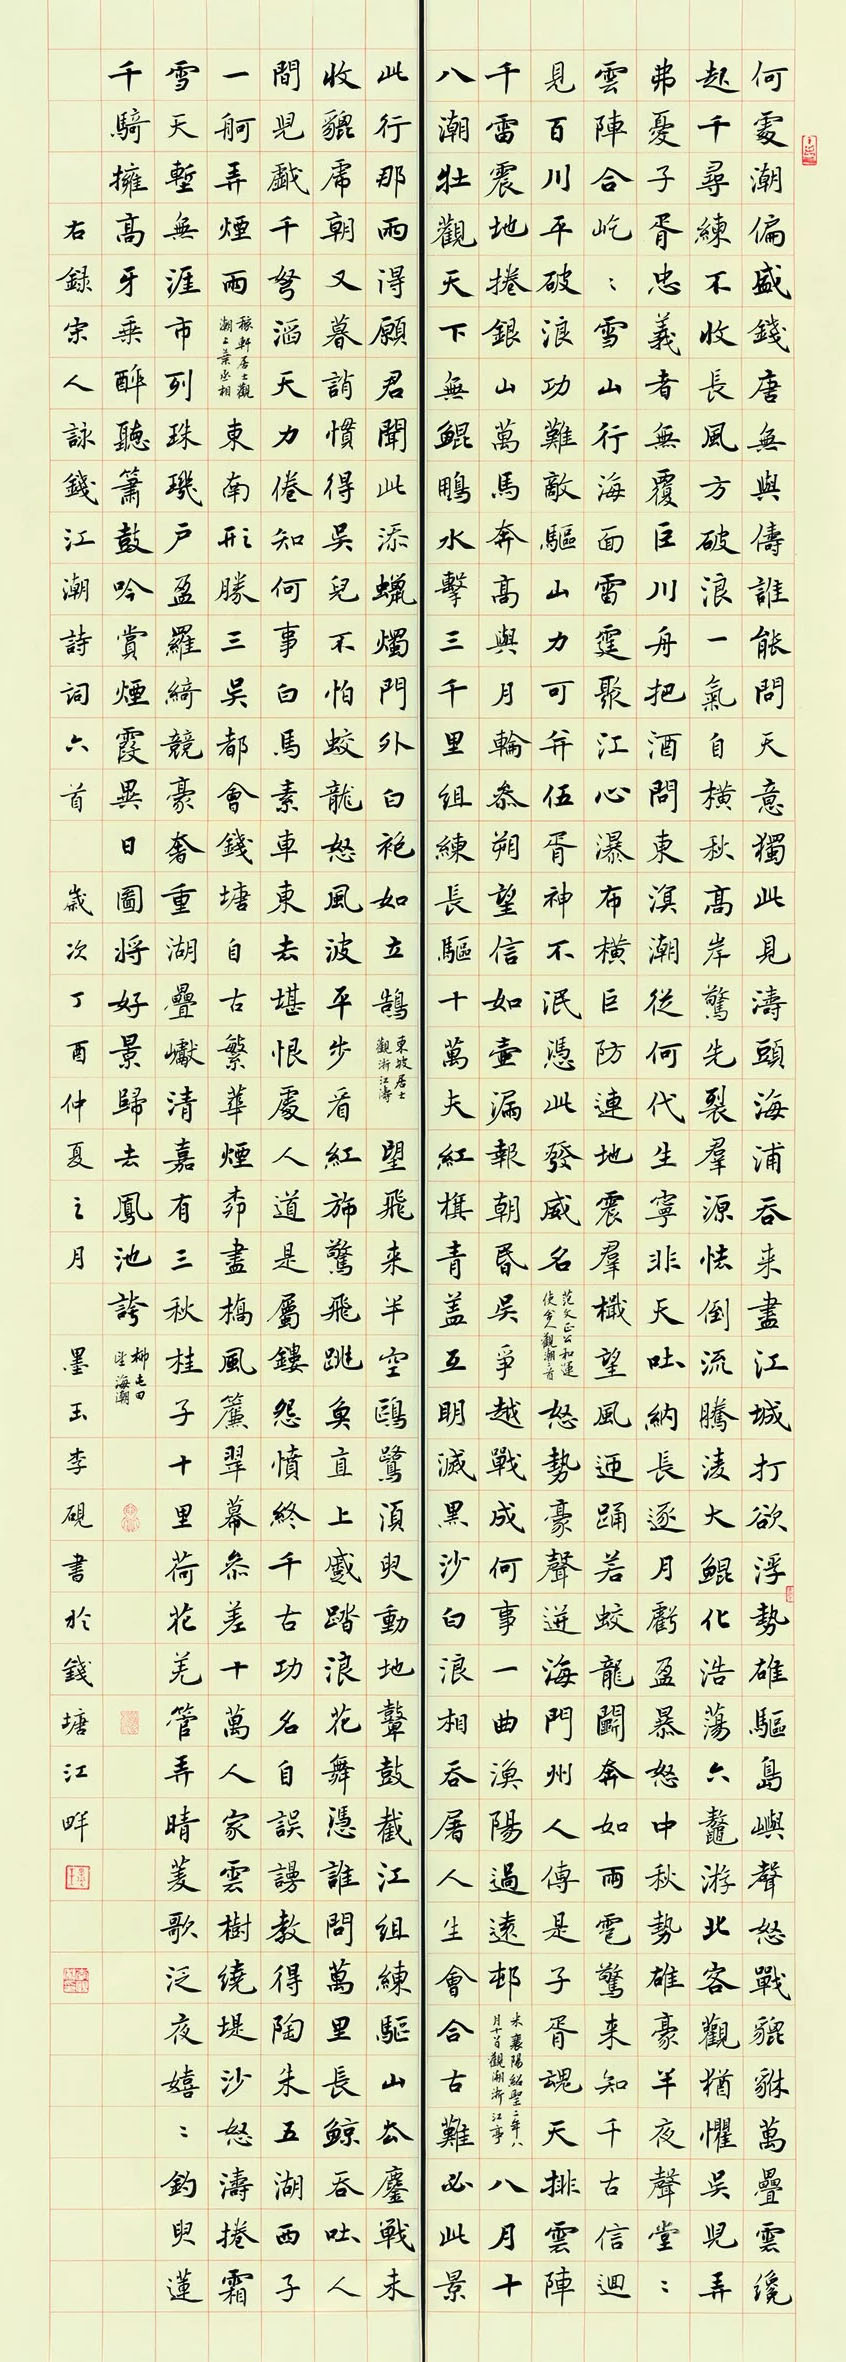 何處潮偏盛錢唐無與儔誰能問天意獨此見濤頭海浦吞来盡江城打欲浮勢雄驅島嶼聲怒戰貔貅萬疊雲纔
起千尋練不收長風方破浪一氣自橫秋高岸驚先裂羣源怯倒流騰凌大鯤化浩蕩六鼇游北客觀猶懼吳兒弄
弗憂子胥忠義者無覆巨川舟把酒問東溟潮從何代生寧非天吐納長逐月虧盈暴怒中秋勢雄豪半夜聲堂:
雲陣合屹:雪山行海面雷霆聚江心瀑布橫巨防連地震羣檝望風迎踊若蛟龍鬭奔如雨雹驚来知千古信迴
見百川平破浪功難敵驅山力可并伍胥神不泯憑此發威名 范文正公和運使舍人觀潮二首 怒勢豪聲迸海門州人傳是子胥魂天排雲陣
千雷震地捲銀山萬馬奔高與月輪參朔望信如壺漏報朝昏吳爭越戰成何事一曲漁陽過遠邨 米襄陽紹聖二年八月十日觀潮浙江亭 八月十
八潮壯觀天下無鯤鵬水擊三千里組練長驅十萬夫紅旗青盖互明滅黑沙白浪相吞屠人生會合古難必此景
此行那兩得願君聞此添蠟燭門外白袍如立鵠 東坡居士觀浙江濤 望飛来半空鷗鷺須臾動地鼙鼓截江組練驅山去鏖戰未
收貔虎朝又暮誚慣得吳兒不怕蛟龍怒風波平步看紅旆驚飛跳魚直上蹙踏浪花舞憑誰問萬里長鯨吞吐人
間兒戲千弩滔天力倦知何事白馬素車東去堪恨處人道是屬鏤怨憤終千古功名自誤謾教得陶朱五湖西子
一舸弄煙雨 稼軒居士觀潮上葉丞相 東南形勝三吳都會錢塘自古繁華煙柳畫橋風簾翠幕參差十萬人家雲樹繞堤沙怒濤捲霜
雪天塹無涯市列珠璣戶盈羅綺競豪奢重湖疊巘清嘉有三秋桂子十里荷花羌管弄晴菱歌泛夜嬉:釣叟蓮
千騎擁高牙乘醉聽簫鼓吟賞煙霞異日圖將好景歸去鳳池誇 柳屯田望海潮
右錄宋人詠錢江潮詩詞六首 歲次丁酉仲夏之月 墨玉李硯書於錢塘江畔